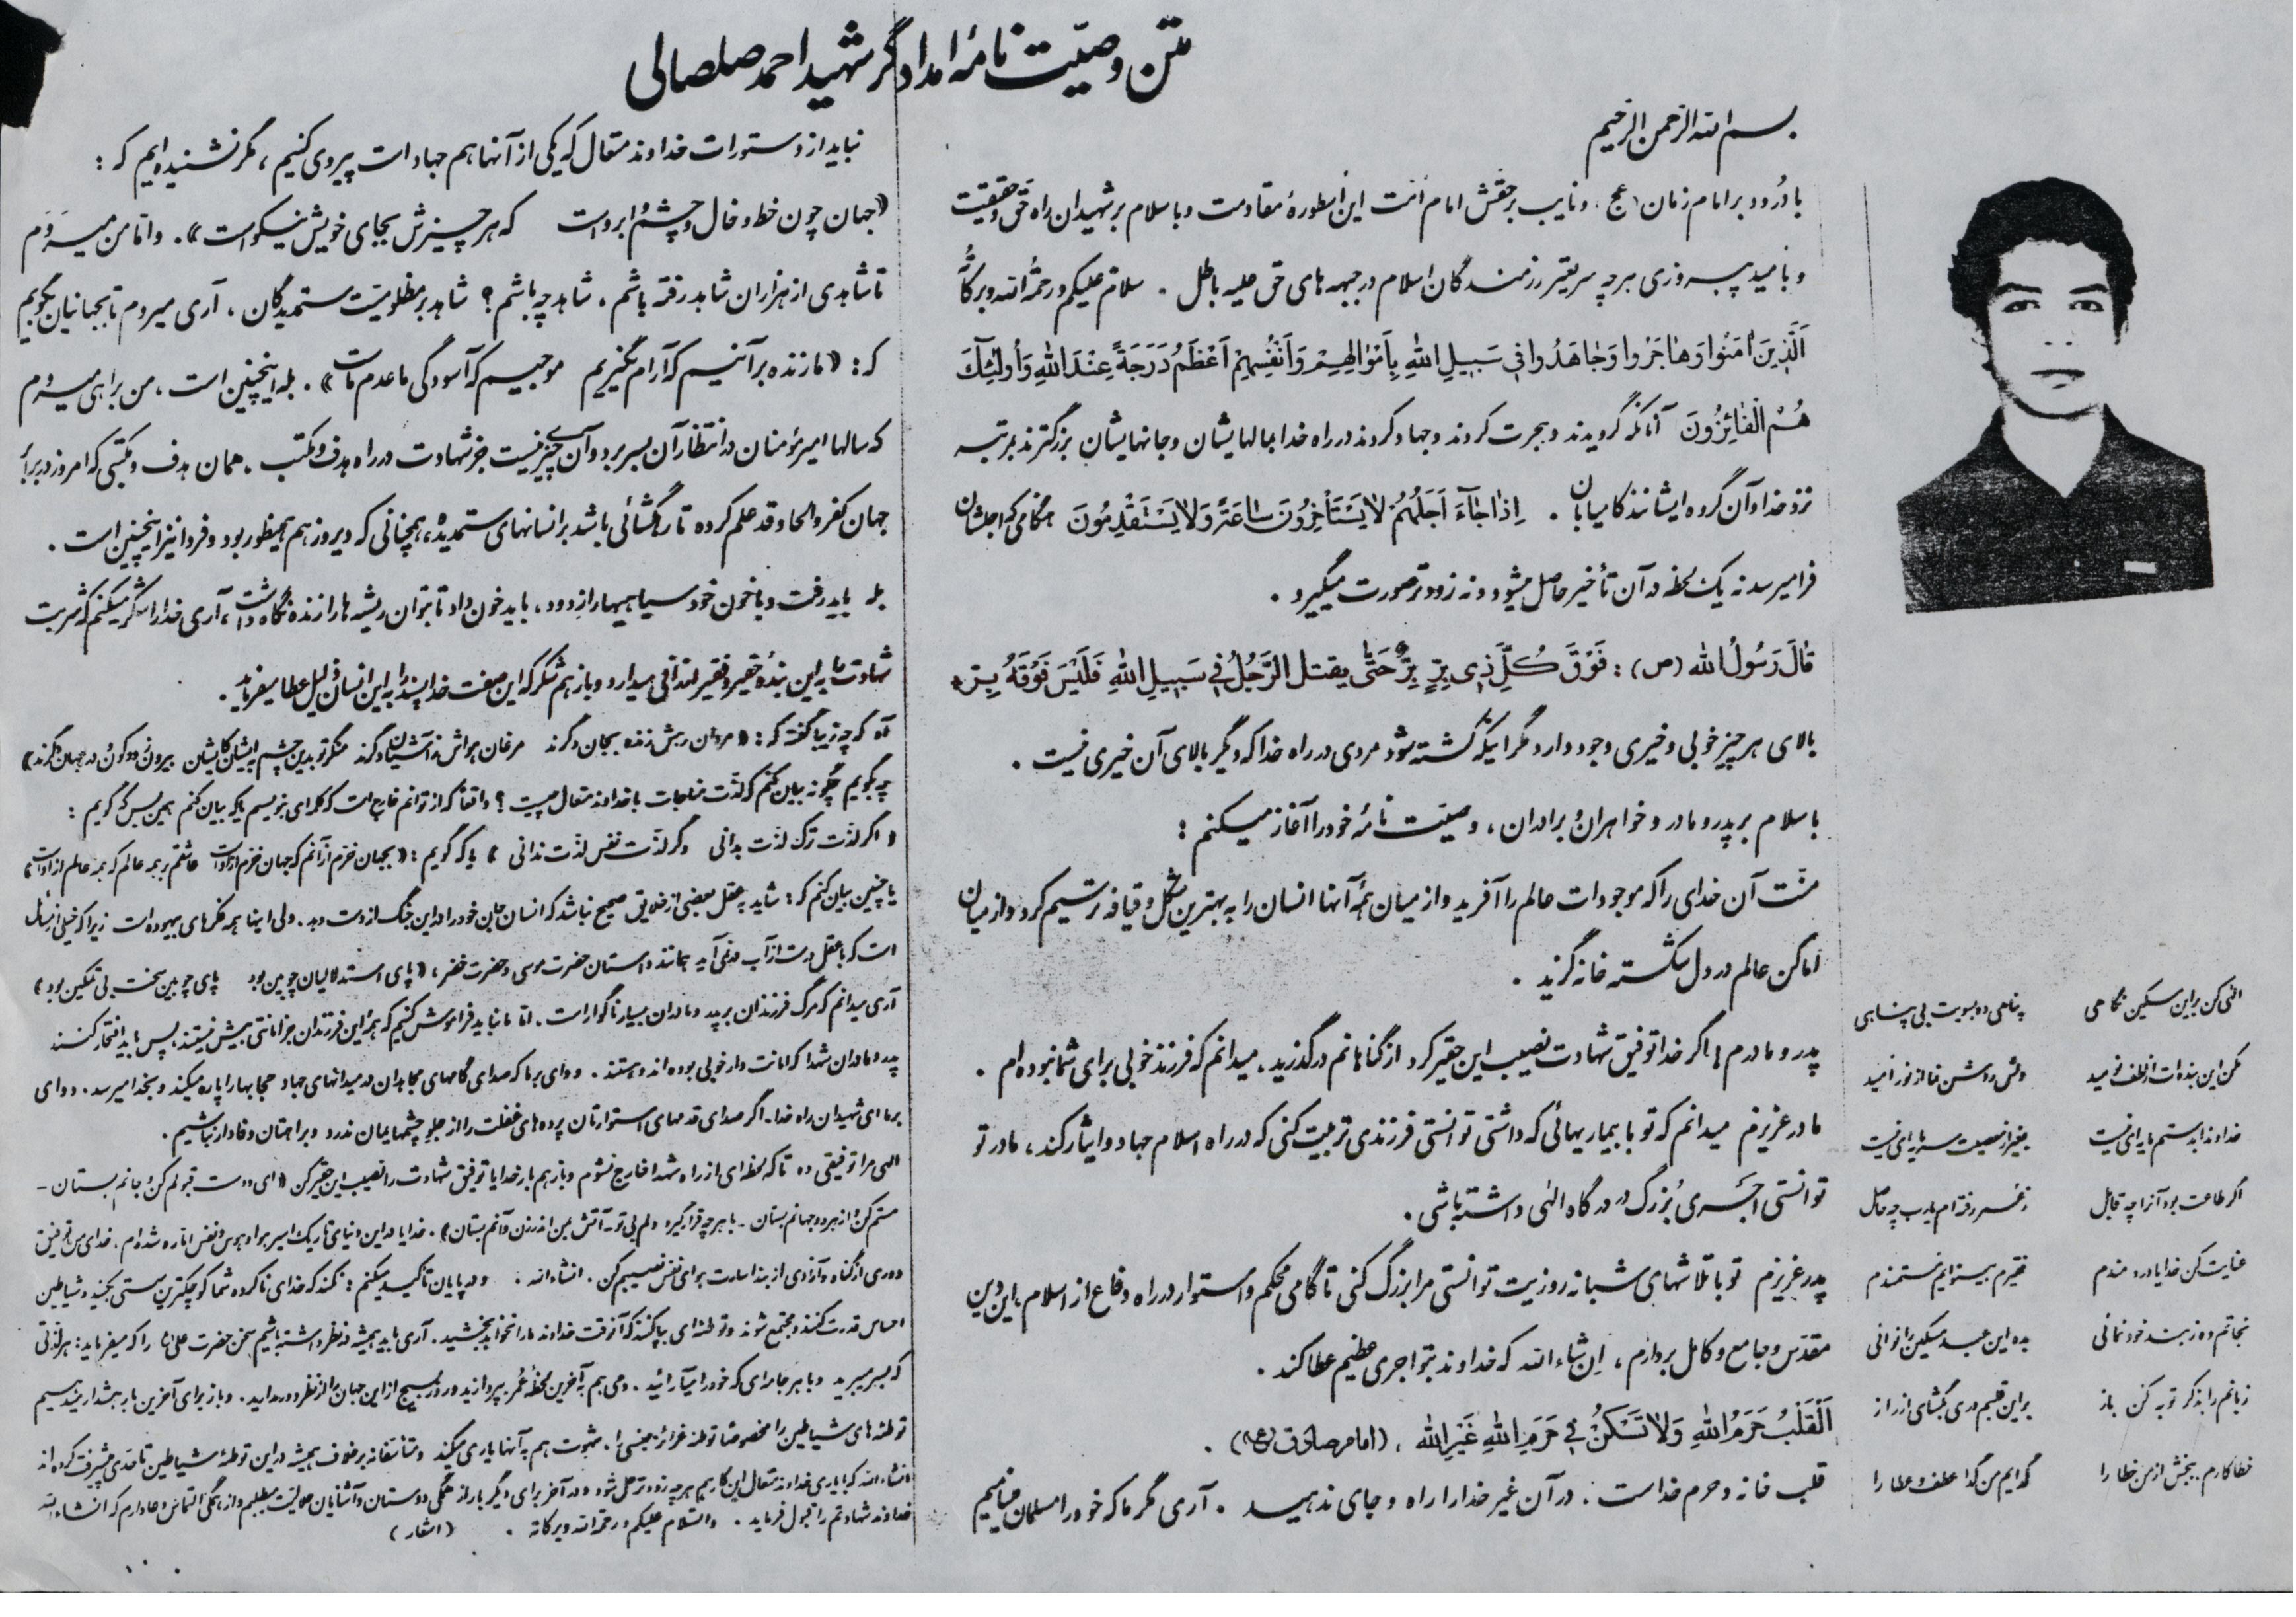 متن وصیّت نامهٔ امدادگر شهید احمد صلصالی
بسم الله الرحمن الرحیم
با دُرود بر امام زمان (عج) و نایب برحقش امام امت این اسطورهٔ مقاومت و با سلام بر شهیدان راه حق و حقیقت
و با امید پیروزی هر چه سریعتر رزمندگان اسلام در جبهه های حق علیه باطل . سلام علیکم و رحمة الله و برکاته
اَلَّذینَ امَنُوا وَ هاجَرُوا وَ جاهَدُوا فی سَبیلِ اللهِ بِاَمْوالِهِمْ وَ اَنْفُسِهِمْ اَعْظَمُ دَرَجَةً عِنْدَ اللهِ وَ اُولئِکَ
هُمُ الْفائِزُونَ آنانکه گرویدند و هجرت کردند و جهاد کردند در راه خدا بمالهایشان و جانهایشان بزرگترند بمرتبه
نزد خدا و آن گروه ایشانند کامیابان . اِذا جاءَ اَجَلُهُمْ لا یَسْتَأْخِرُونَ ساعَةً وَ لا یَسْتَقْدِمُونَ هنگامی که اجلشان
فرا میرسد نه یک لحظه در آن تأخیر حاصل میشود و نه زودتر صورت میگیرد .
قالَ رَسُولُ الله (ص) : فَوْقَ کُلِّ ذی بِرٍّ بِرٌّ حَتّی یقتل الرَّجُلُ فی سَبیلِ اللهِ فَلَیْسَ فَوْقَهُ بِرّ
بالای هر چیز خوبی و خیری وجود دارد مگر اینکه کشته شود مردی در راه خدا که دیگر بالای آن خیری نیست .
با سلام بر پدر و مادر و خواهران و برادران ، وصیّت نامهٔ خود را آغاز میکنم :
منّت آن خدای را که موجودات عالم را آفرید و از میان همهٔ آنها انسان را به بهترین شکل و قیافه ترسیم کرد و از میان
اماکن عالم در دل شکسته خانه گزید .
پدر و مادرم ! اگر خدا توفیق شهادت نصیب این حقیر کرد از گناهانم درگذرید ، میدانم که فرزند خوبی برای شما نبوده ام .
مادر عزیزم میدانم که تو با بیماریهائی که داشتی توانستی فرزندی تربیت کنی که در راه اسلام جهاد و ایثار کند ، مادر تو
توانستی اَجری بُزرگ در درگاه الهی داشته باشی .
پدر عزیزم تو با تلاشهای شبانه روزیت توانستی مرا بزرگ کنی تا گامی محکم و استوار در راه دفاع از اسلام ، این دین
مقدّس و جامع و کامل بردارم ، اِن شاء الله که خداوند بتو اجری عظیم عطا کند .
اَلْقَلْبُ حَرَمُ اللهِ وَ لا تَسْکُنْ فی حَرَمِ اللهِ غَیْرَ الله . (امام صادق (ع)) .
قلب خانه و حرم خداست . در آن غیر خدا را راه و جای ندهید . آری مگر ما که خود را مسلمان مینامیم
الهی کن بر این مسکین نگاهی پناهی ده بسویت بی پناهی
مکن این بنده ات از لطف نومید دلش روشن نما از نور امید
خداوندا بدستم مایه ای نیست بغیر از معصیت سرمایه ای نیست
اگر طاعت بود آنرا چه قابل ز عمر رفته ام یارب چه حاصل
عنایت کن خدایا دردمندم فقیرم بینوایم مستمندم
نجاتم ده ز بند خودنمائی بده این عبد مسکین را نوائی
زبانم را بذکر توبه کن باز بر این قلبم دری بگشای از راز
خطاکارم ببخش از من خطا را گدایم من گدا عطف و عطا را
نباید از دستورات خداوند متعال که یکی از آنها هم جهاد است پیروی کنیم ، مگر نشنیده ایم که :
«جهان چون خط و خال و چشم و ابروست که هر چیزش بجای خویش نیکوست» . و اما من میروم
تا شاهدی از هزاران شاهد رفته باشم ، شاهد چه باشم ؟ شاهد بر مظلومیّت ستمدیدگان ، آری میروم تا بجهانیان بگویم
که : «ما زنده بر آنیم که آرام نگیریم موجیم که آسودگی ما عدم ماست» . بله اینچنین است ، من براهی میروم
که سالها امیرمؤمنان در انتظار آن بسر برد و آن چیزی نیست جز شهادت در راه هدف و مکتب . همان هدف و مکتبی که امروز در برابر
جهان کفر و الحاد قد علم کرده تا رهگشائی باشد بر انسانهای ستمدیده ، همچنانی که دیروز هم همینطور بود و فردا نیز اینچنین است .
بله باید رفت و با خون خود سیاهیها را زدود ، باید خون داد تا بتوان ریشه ها را زنده نگاه داشت ، آری خدا را شکر میکنم که شربت
شهادت را به این بندهٔ حقیر و فقیر ارزانی میدارد و باز هم شکر که این صفت خداپسند را به این انسان ذلیل عطا میفرماید .
آه که چه زیبا گفته که : «مردان رهش زنده بجان دگرند مرغان هواش ز آشیان دگرند منگر تو بدین چشم بدیشان کایشان بیرون ز دو کون در جهان دگرند»
چه بگویم چگونه بیان کنم که لذّت مناجات با خداوند متعال چیست ؟ واقعاً که از توانم خارج است که کلمه ای بنویسم یا که بیان کنم همین بس که گویم :
«اگر لذّت ترک لذّت بدانی دگر لذّت نفس لذّت ندانی» یا که گویم : «بجهان خرّم از آنم که جهان خرّم از اوست عاشقم بر همه عالم که همه عالم از اوست»
یا چنین بیان کنم که : شاید به عقل بعضی از خلایق صحیح نباشد که انسان جان خود را در این جنگ از دست دهد . ولی اینها همه فکرهای بیهوده است زیرا که خیلی از مسائل
است که با عقل درست از آب در نمی آید همانند داستان حضرت موسی و حضرت خضر ، «پای استدلالیان چوبین بود پای چوبین سخت بی تمکین بود»
آری میدانم که مرگ فرزندان بر پدر و مادران بسیار ناگوار است . امّا ما نباید فراموش کنیم که همهٔ این فرزندان جز امانتی بیش نیستند ، پس باید افتخار کنند
پدر و مادران شهدا که امانت دار خوبی بوده اند و هستند . و وای بر ما که صدای گامهای مجاهدان در میدانهای جهاد حجابها را پاره میکند و بخدا میرسد . و وای
بر ما ای شهیدان راه خدا . اگر صدای قدمهای استوارتان پرده های غفلت را از جلو چشمهایمان ندرد و براهتان وفادار نباشیم .
الهی مرا توفیقی ده تا که لحظه ای از راه شهدا خارج نشوم و باز هم بار خدایا توفیق شهادت را نصیب این حقیر کن «ای دوست قبولم کن و جانم بستان -
مستم کن و از هر دو جهانم بستان - با هر چه قرار گیرد دلم بی تو - آتش بمن اندر زن و آنم بستان» . خدایا در این دنیای تاریک اسیر هوا و هوس و نفس اماره شده ام . خدای من توفیق
دوری از گناه و آزادی از بند اسارت هوای نفس نصیبم کن . انشاء الله . و در پایان تأکید میکنم : نکند که خدای ناکرده شما کوچکترین سستی بکنید و شیاطین
احساس قدرت کنند و مجتمع شوند و توطئه ای بپا کنند که آنوقت خداوند ما را نخواهد بخشید . آری باید همیشه در نظر داشته باشیم سخن حضرت علی (ع) را که میفرماید : هر لذّتی
که بسر میبرید و با هر جامه ای که خود را میآرائید . دمی هم به آخرین لحظهٔ عُمر بپردازید و روز بسیج از این جهان را از نظر دور مدارید . و باز برای آخرین بار هشدار میدهیم
توطئه های شیاطین را مخصوصاً توطئه غرائز جنسی را . شهوت هم به آنها یاری میکند و متأسفانه برخلاف همیشه در این توطئه شیاطین تا حدی پیشرفت کرده اند
انشاء الله که با یاری خداوند متعال این کار هم هر چه زودتر حل شود و در آخر برای دیگر بار از همگی دوستان و آشنایان حلالیّت میطلبم و از همگی التماس دعا دارم که انشاء الله
خداوند شهادتم را قبول فرماید . والسّلام علیکم و رحمة الله و برکاته .